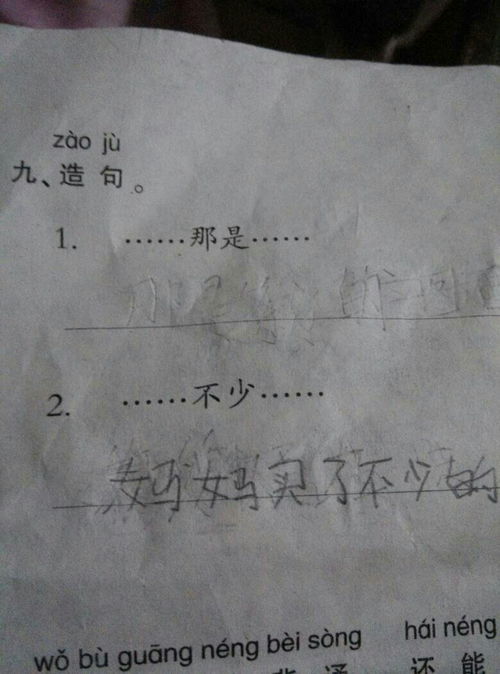 zào jù
九、造 句。
1. ……那是……
那是 的
2. ……不少……
妈妈买了不少的
wǒ bù guāng néng bèi sòng hái néng
还 能